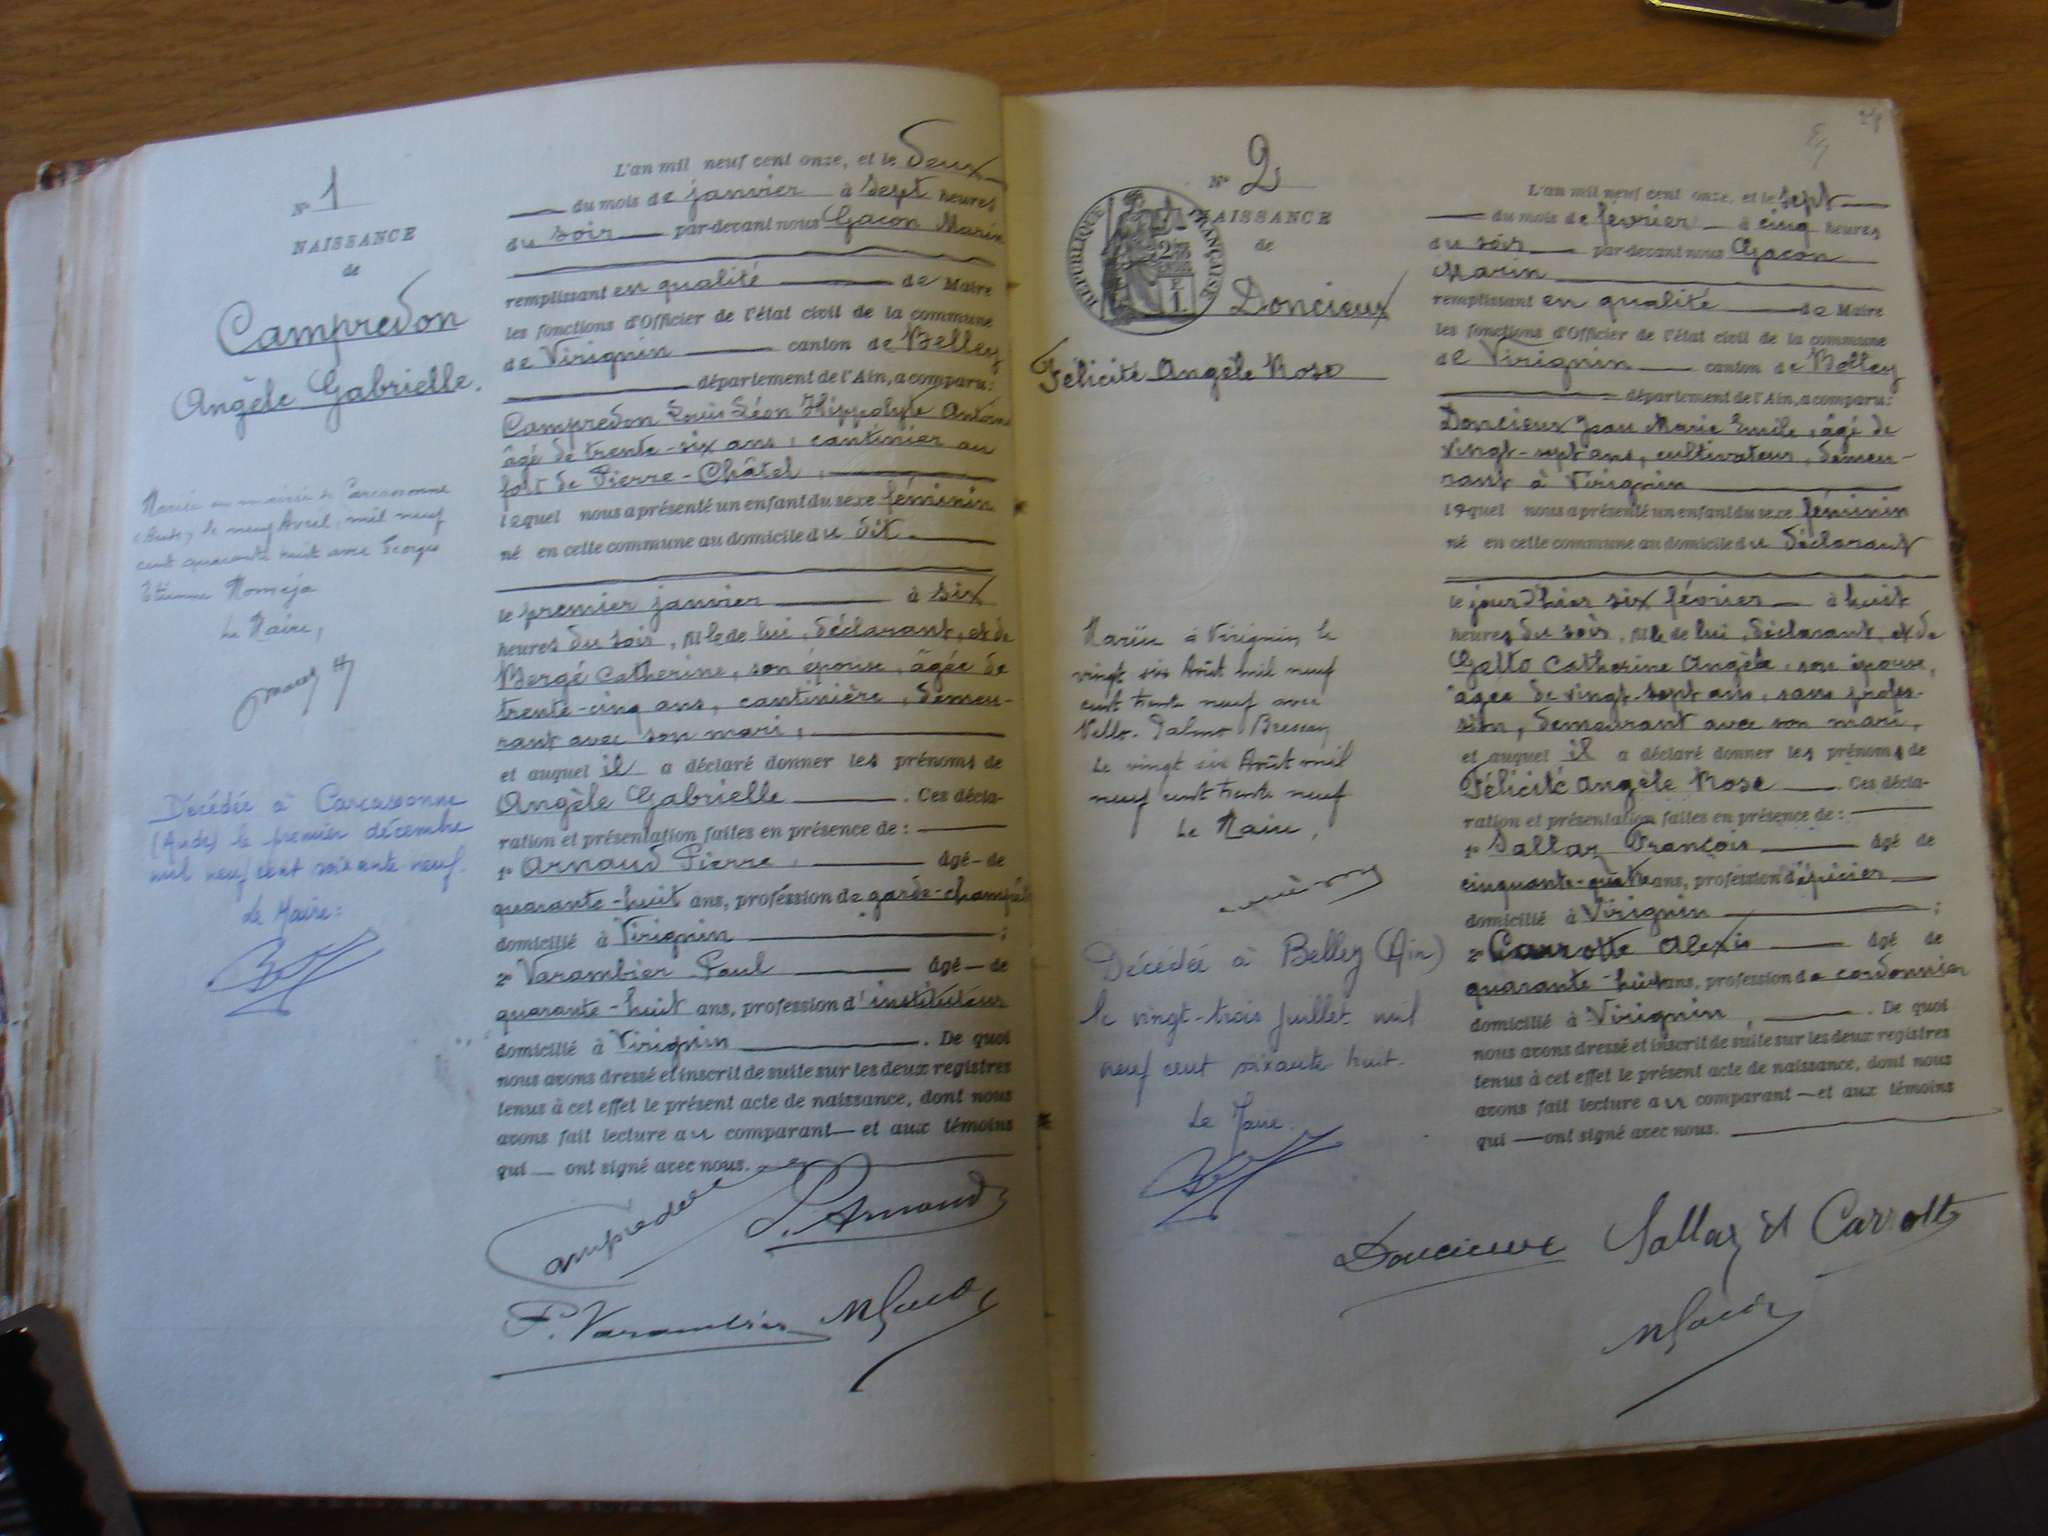 N° 1
NAISSANCE
de
Campredon
Angèle Gabrielle.
Mariée en mairie de Carcassonne
(Aude) le neuf Avril, mil neuf
cent quarante huit avec Georges
Etienne Homéja
Le Maire,
Décédée à Carcassonne
(Aude) le premier décembre
mil neuf cent soixante neuf.
Le Maire:
L'an mil neuf cent onze, et le deux
du mois de janvier à sept heures
du soir par-devant nous Gacon Marin
remplissant en qualité de Maire
les fonctions d'Officier de l'état civil de la commune
de Virignin canton de Belley
département de l'Ain, a comparu:
Campredon Louis Léon Hippolyte Antoine
âgé de trente-six ans, cantinier au
fort de Pierre-Châtel,
lequel nous a présenté un enfant du sexe féminin
né en cette commune au domicile du dit.
le premier janvier à six
heures du soir, fille de lui, déclarant, et de
Bergé Catherine, son épouse, âgée de
trente-cinq ans, cantinière, demeu-
rant avec son mari,
et auquel il a déclaré donner les prénoms de
Angèle Gabrielle. Ces décla-
ration et présentation faites en présence de:
1° Arnaud Pierre, âgé de
quarante-huit ans, profession de garde-champêtre
domicilié à Virignin;
2° Varambier Paul âgé de
quarante-huit ans, profession d'instituteur
domicilié à Virignin. De quoi
nous avons dressé et inscrit de suite sur les deux registres
tenus à cet effet le présent acte de naissance, dont nous
avons fait lecture au comparant et aux témoins
qui ont signé avec nous.
Campredon P. Arnaud
P. Varambier MGacon
24
N° 2
RÉPUBLIQUE FRANÇAISE
NAISSANCE
de
Doncieux
Félicité Angèle Rose
Mariée à Virignin le
vingt six Août mil neuf
cent trente neuf avec
Vello-Palmo Bressan
Le vingt six Août mil
neuf cent trente neuf
Le Maire,
Décédée à Belley (Ain)
le vingt-trois Juillet mil
neuf cent soixante huit.
Le Maire.
L'an mil neuf cent onze, et le sept
du mois de février à cinq heures
du soir par-devant nous Gacon
Marin
remplissant en qualité de Maire
les fonctions d'Officier de l'état civil de la commune
de Virignin canton de Belley
département de l'Ain, a comparu:
Doncieux Jean Marie Emile, âgé de
vingt-sept ans, cultivateur, demeu-
rant à Virignin
lequel nous a présenté un enfant du sexe féminin
né en cette commune au domicile du déclarant
le jour d'hier six février à huit
heures du soir, fille de lui, déclarant, et de
Gello Catherine Angèle, son épouse,
âgée de vingt-sept ans, sans profes-
sion, demeurant avec son mari,
et auquel il a déclaré donner les prénoms de
Félicité Angèle Rose. Ces décla-
ration et présentation faites en présence de:
1° Sallaz François âgé de
cinquante-quatre ans, profession d'épicier
domicilié à Virignin;
2° Carrotte Alexis âgé de
quarante-huit ans, profession de cordonnier
domicilié à Virignin,. De quoi
nous avons dressé et inscrit de suite sur les deux registres
tenus à cet effet le présent acte de naissance, dont nous
avons fait lecture au comparant et aux témoins
qui ont signé avec nous.
Doncieux Sallaz Carrotte
MGacon